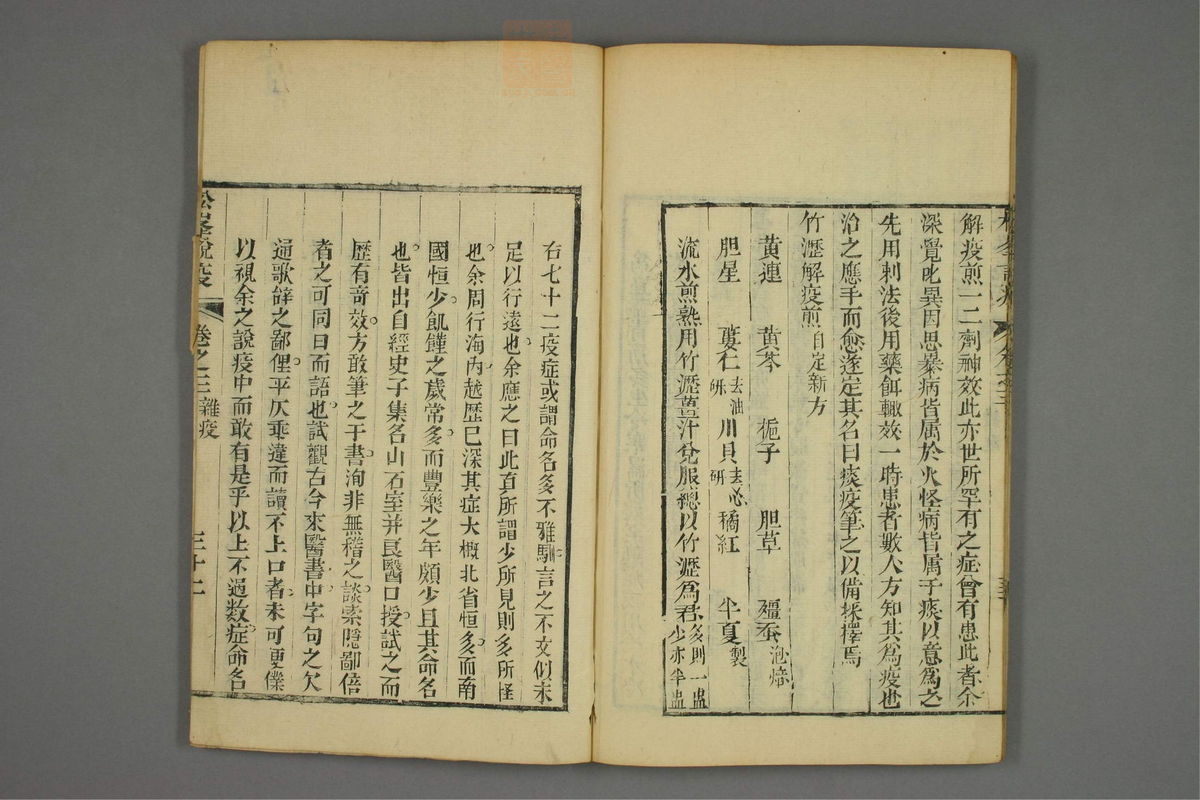 解疫煎一二劑神效此亦世所罕有之症曾有患此者余
深覺叱異因思暴病皆属於火怪病皆属于痰以意為之
先用刺法後用藥餌輙效一時患者數人方知其為疫也
治之應手而愈遂定其名曰痰疫筆之以備採擇焉
竹瀝解疫煎自定新方
黄連 黄芩 梔子 胆草 殭蚕泡焙
胆星 蔞仁去油研 川貝去心研 橘紅 半夏製
流水煎熟用竹瀝薑汁兌服總以竹瀝為君多則一盅少亦半盅
右七十二疫症或謂命名多不雅馴言之不文似未
足以行遠也余應之曰此直所謂少所見則多所怪
也余周行海内越歷已深其症大概北省恒多而南
國恒少飢饉之歲常多而豐樂之年頗少且其命名
也皆出自經史子集名山石室并良醫口授試之而
歷有奇效方敢筆之于書洵非無稽之談索隱鄙倍
者之可同日而語也試觀古今來醫書中字句之欠
通歌辞之鄙俚平仄乖違而讀不上口者未可更僕
以視余之說疫中而敢有是乎以上不過数症命名
松峯說疫 卷之三雜疫 三十二